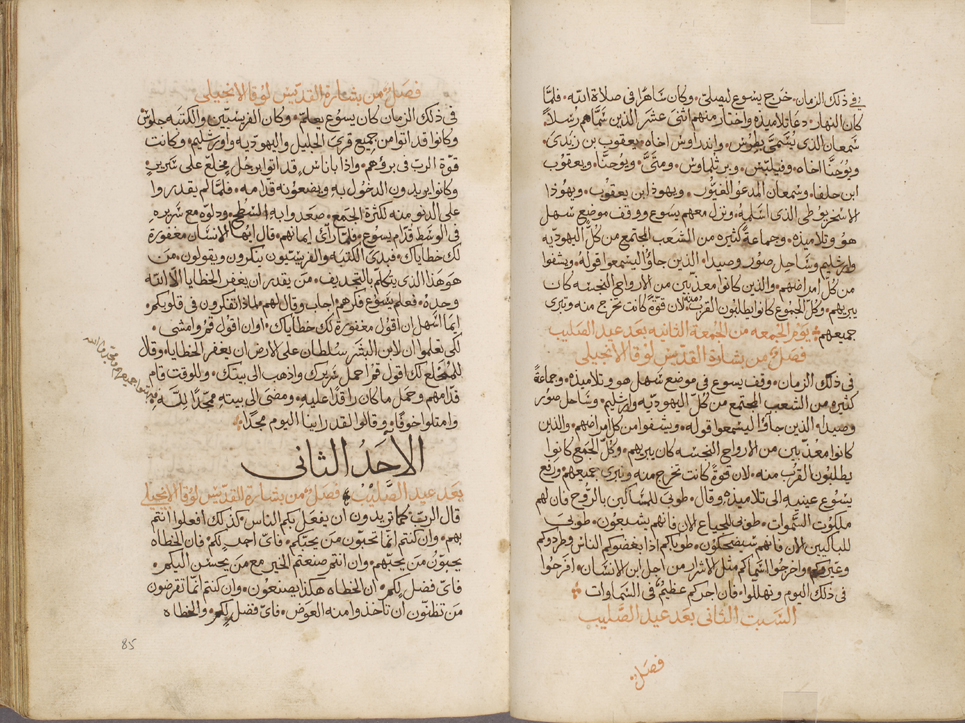 في ذلك الزمان خرج يسوع ليصلي وكان ساهرا في صلاة الله فلما
كان النهار دعا تلاميذه واختار منهم اثنى عشر الذين سماهم رسلا
سمعان الذى يسمى بطرس واندراوس اخاه يعقوب بن زبدى
ويوحنا اخاه وفيلبس وبرثلماوس ومتى وتوما ويعقوب
ابن حلفا وسمعان المدعو الغيور ويهوذا ابن يعقوب ويهوذا
الاسخريوطى الذى اسلمه ونزل معهم يسوع ووقف موضع سهل
هو وتلاميذه وجماعة كثيره من الشعب المجتمع من كل اليهوديه
واورشليم وساحل صور وصيدا الذين جاؤا ليسمعوا قوله ويشفوا
من كل امراضهم والذين كانوا معذبين من الارواح النجسه كان
يبريهم وكل الجموع كانوا يطلبون القرب منه لان قوة كانت تخرج منه وتبرى
جميعهم يوم الجمعه من الجمعة الثانيه بعد عيد الصليب
فصل من بشارة القديس لوقا الانجيلى
فى ذلك الزمان وقف يسوع فى موضع سهل هو وتلاميذه وجماعة
كثيره من الشعب المجتمع من كل اليهوديه واورشليم وساحل صور
وصيدا الذين جاؤا ليسمعوا قوله ويشفوا من كل امراضهم والذين
كانوا معذبين من الارواح النجسه كان يبريهم وكل الجمع كانوا
يطلبون القرب منه لان قوة كانت تخرج منه وتبرى جميعهم ورفع
يسوع عينيه الى تلاميذه وقال طوبى للمساكين بالروح فان لهم
ملكوت السموات طوبى للجياع الان فانهم يشبعون طوبى
للباكيين الان فانهم سيضحكون طوباكم اذا بغضوكم الناس وطردوكم
وعيروكم واخرجوا اسماكم مثل الاشرار من اجل ابن الانسان افرحوا
فى ذلك اليوم وتهللوا فان اجركم عظيم فى السموات
السبت الثانى بعد عيد الصليب
فصل
فصل من بشارة القديس لوقا الانجيلى
فى ذلك الزمان كان يسوع يعلم وكان الفريسيين والكتبه جلوس
وكانوا قد اتوا من جميع قرى الجليل واليهوديه واورشليم وكانت
قوة الرب فى برؤهم واذا باناس قد اتوا برجل مخلع على سرير
وكانوا يريدون الدخول به ويضعونه قدامه فلما لم يقدروا
على الدنو منه لكثرة الجمع صعدوا به السطح ودلوه مع سريره
فى الوسط قدام يسوع فلما راى ايمانهم قال ايها الانسان مغفورة
لك خطاياك فبدى الكتبه والفريسيون يفكرون ويقولون من
هو هذا الذى يتكلم بالتجديف من يقدر ان يغفر الخطايا الا الله
وحده فعلم يسوع فكرهم اجاب وقال لهم لماذا تفكرون فى قلوبكم
ايما اسهل ان اقول مغفورة لك خطاياك او ان اقول قم وامشى
لكى تعلموا ان لابن البشر سلطان على الارض ان يغفر الخطايا وقال
للمخلع لك اقول قم احمل سريرك واذهب الى بيتك وللوقت قام
قدامهم وحمل ما كان راقدا عليه ومضى الى بيته ممجدا لله
وامتلوا خوفا وقالوا لقد راينا اليوم مجدا
الاحد الثانى
بعد عيد الصليب فصل من بشارة القديس لوقا الانجيلى
قال الرب كما تريدون ان يفعل بكم الناس كذلك افعلوا انتم
بهم وان كنتم انما تحبون من يحبكم فاى اجر لكم فان الخطاه
يحبون من يحبهم وان انتم صنعتم الخير مع من يحسن اليكم
فاى فضل لكم ان الخطاه هكذا يصنعون وان كنتم انما تقرضون
من تظنون ان تاخذوا منه العوض فاى فضل لكم والخطاه
85